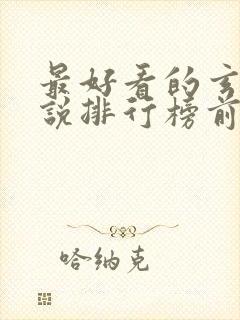 最好看的玄
說排行榜前
哈纳克